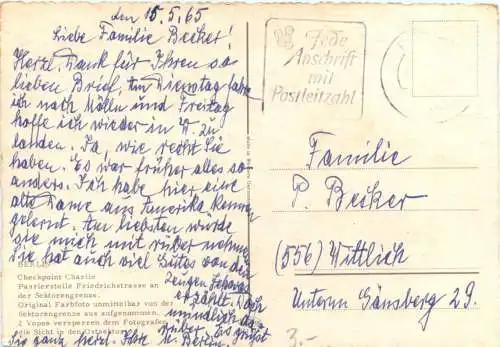 den 15.5.65
Liebe Familie Becker!
Herzl. Dank für Ihren so
lieben Brief. Am Dienstag fahre
ich nach Mölln und Freitag
hoffe ich wieder in W. zu
landen. Ja, wie recht Sie
haben. Es war früher alles so
anders. Ich habe hier eine
alte Dame aus Amerika kennen
gelernt. Am liebsten würde
sie mich mit rüber nehmen.
Sie hat auch viel Gutes von den
Zeugen Jehovas
erzählt. Doch
mündlich da-
rüber. Es grüsst
Sie ganz herzl. Ihre
BERLIN
Checkpoint Charlie
Passierstelle Friedrichstrasse an
der Sektorengrenze.
Original Farbfoto unmittelbar von der
Sektorengrenze aus aufgenommen.
2 Vopos versperren dem Fotografen
die Sicht in den Ostsektor.
Jede
Anschrift
mit
Postleitzahl
Familie
P. Becker
(556) Wittlich
Unterm Gänsberg 29.
3.-